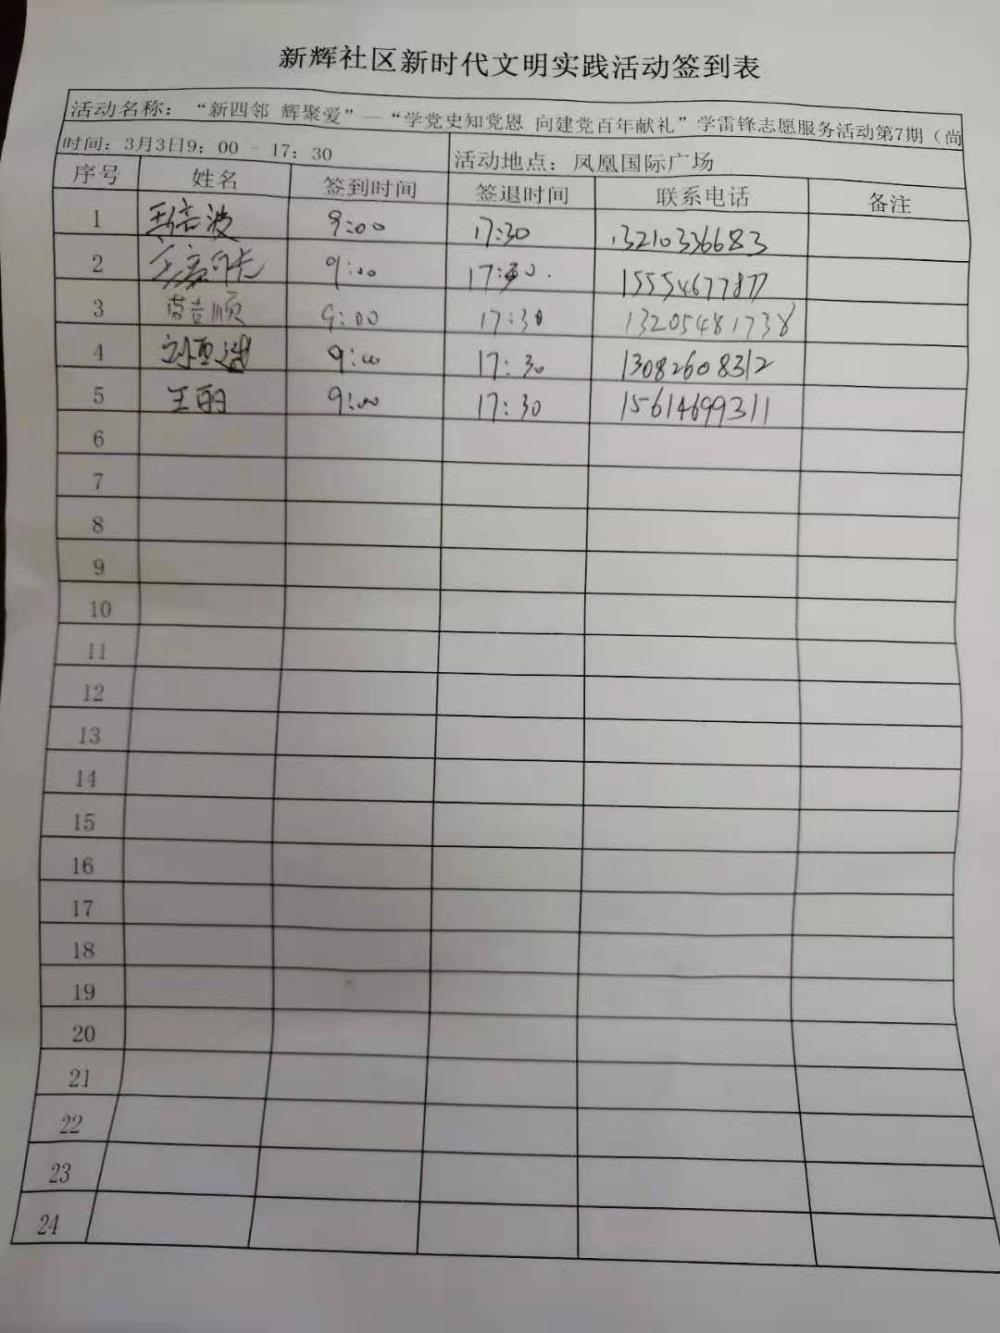 新辉社区新时代文明实践活动签到表
活动名称：“新四邻 辉聚爱”—“学党史知党恩 向建党百年献礼”学雷锋志愿服务活动第7期（尚
时间：3月3日9：00 - 17：30 活动地点：凤凰国际广场
序号 姓名 签到时间 签退时间 联系电话 备注
1 9:00 17:30 13210336683
2 9:00 17:30. 15554677877
3 苗吉顺 9:00 17:30 13205481738
4 9:00 17:30 13082608312
5 王丽 9:00 17:30 15614699311
6
7
8
9
10
11
12
13
14
15
16
17
18
19
20
21
22
23
24